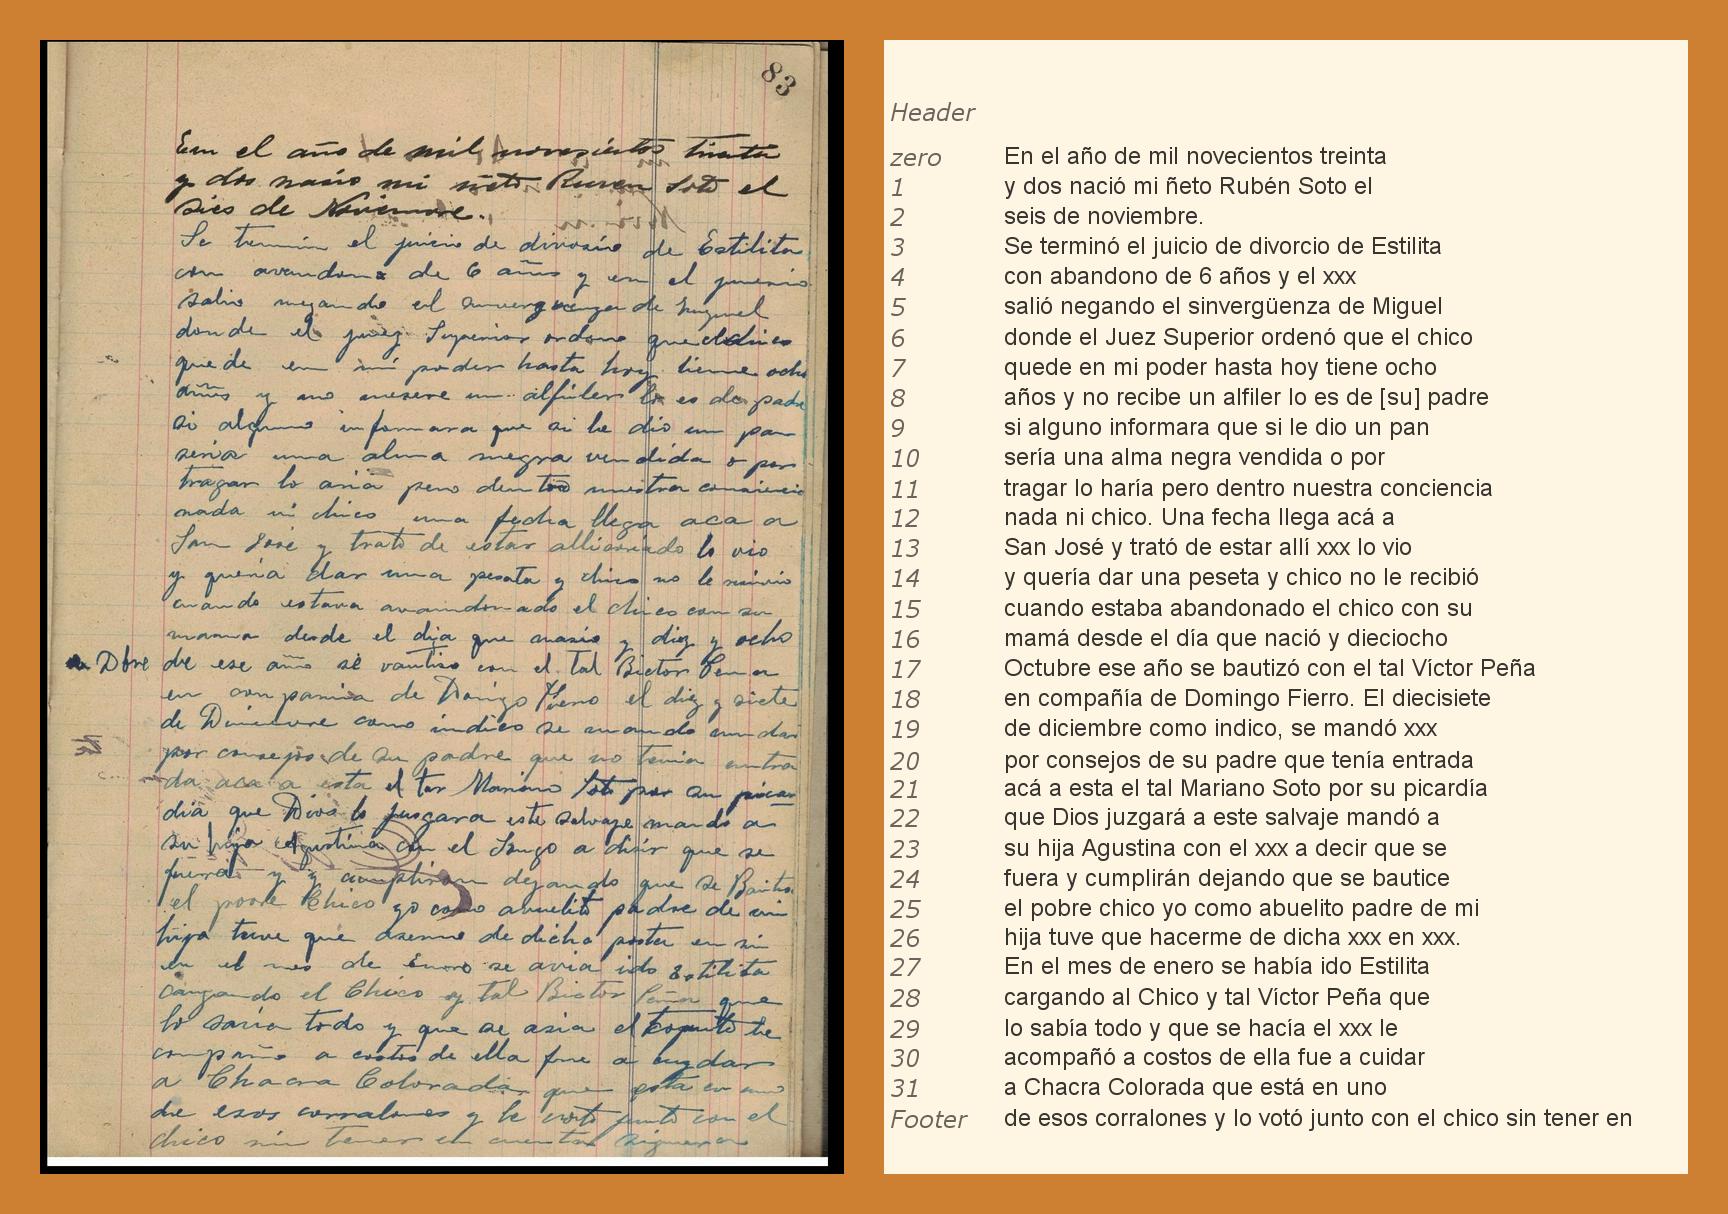 83
En el año de mil novecientos treinta
y dos nasio mi ñeto Ruven Soto el
sies de Noviemvre.
Se termin el juicio de divorsio de Estilita
con avandono de 6 años y en el
salio negando el sinverguenza de Miguel
donde el juez Superior ordono que el chico
quede en mi poder hasta hoy tiene ocho
años y no resere un alfiler lo es de padre
si alguno informara que si le dio un pan
seria una alma negra vendida o por
tragar lo aria pero dentro nuestra consiencia
nada ni chico una fecha llega aca a
San José y trato de estar alli lo vio
y queria dar una peseta y chico no le resivio
cuando estava avandonado el chico con su
mama desde el dia que nasio y diez y ocho
Dbre de ese año se vautiso con el tal Bictor Peña
en compania de Domigo Fierro el diez y siete
de Disiemvre como indico se mando
por consejos de su padre que no tenia entra
da aca a esta el tar Mariano Soto por su picar
dia que Dios lo jusgara este salvaje mando a
su hija Agustina con el a disir que se
fuerra y y cumpliran dejando que se Bautise
el povre Chico yo como avuelito padre de mi
hija tuve que aserme de dicha en
en el mes de Enero se avia ido Estilita
cargando el Chico y tal Bictor Peña que
lo savia todo y que se asia el le
compaño a costos de ella fue a cuydar
a Chacra Colorada que esta en uno
de esos corralones y le voto junto con el
chico sin tener en cuenta siquiera
Header
zero En el año de mil novecientos treinta
1 y dos nació mi ñeto Rubén Soto el
2 seis de noviembre.
3 Se terminó el juicio de divorcio de Estilita
4 con abandono de 6 años y el xxx
5 salió negando el sinvergüenza de Miguel
6 donde el Juez Superior ordenó que el chico
7 quede en mi poder hasta hoy tiene ocho
8 años y no recibe un alfiler lo es de [su] padre
9 si alguno informara que si le dio un pan
10 sería una alma negra vendida o por
11 tragar lo haría pero dentro nuestra conciencia
12 nada ni chico. Una fecha llega acá a
13 San José y trató de estar allí xxx lo vio
14 y quería dar una peseta y chico no le recibió
15 cuando estaba abandonado el chico con su
16 mamá desde el día que nació y dieciocho
17 Octubre ese año se bautizó con el tal Víctor Peña
18 en compañía de Domingo Fierro. El diecisiete
19 de diciembre como indico, se mandó xxx
20 por consejos de su padre que tenía entrada
21 acá a esta el tal Mariano Soto por su picardía
22 que Dios juzgará a este salvaje mandó a
23 su hija Agustina con el xxx a decir que se
24 fuera y cumplirán dejando que se bautice
25 el pobre chico yo como abuelito padre de mi
26 hija tuve que hacerme de dicha xxx en xxx.
27 En el mes de enero se había ido Estilita
28 cargando al Chico y tal Víctor Peña que
29 lo sabía todo y que se hacía el xxx le
30 acompañó a costos de ella fue a cuidar
31 a Chacra Colorada que está en uno
Footer de esos corralones y lo votó junto con el chico sin tener en